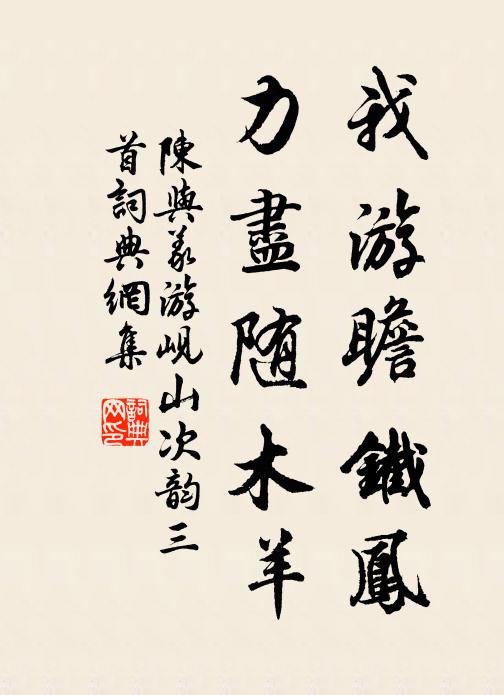 我游瞻鐵鳳
力盡随木羊
陳與義游峴山次韵三
首詞典網集
詞典
网印